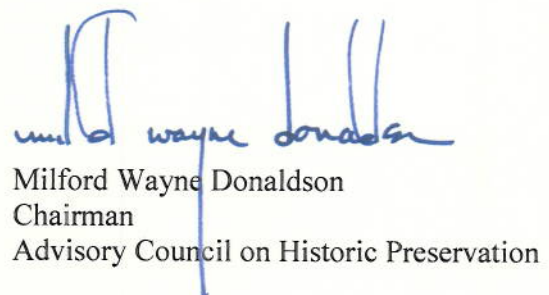 milford wayne donaldson
Milford Wayne Donaldson
Chairman
Advisory Council on Historic Preservation